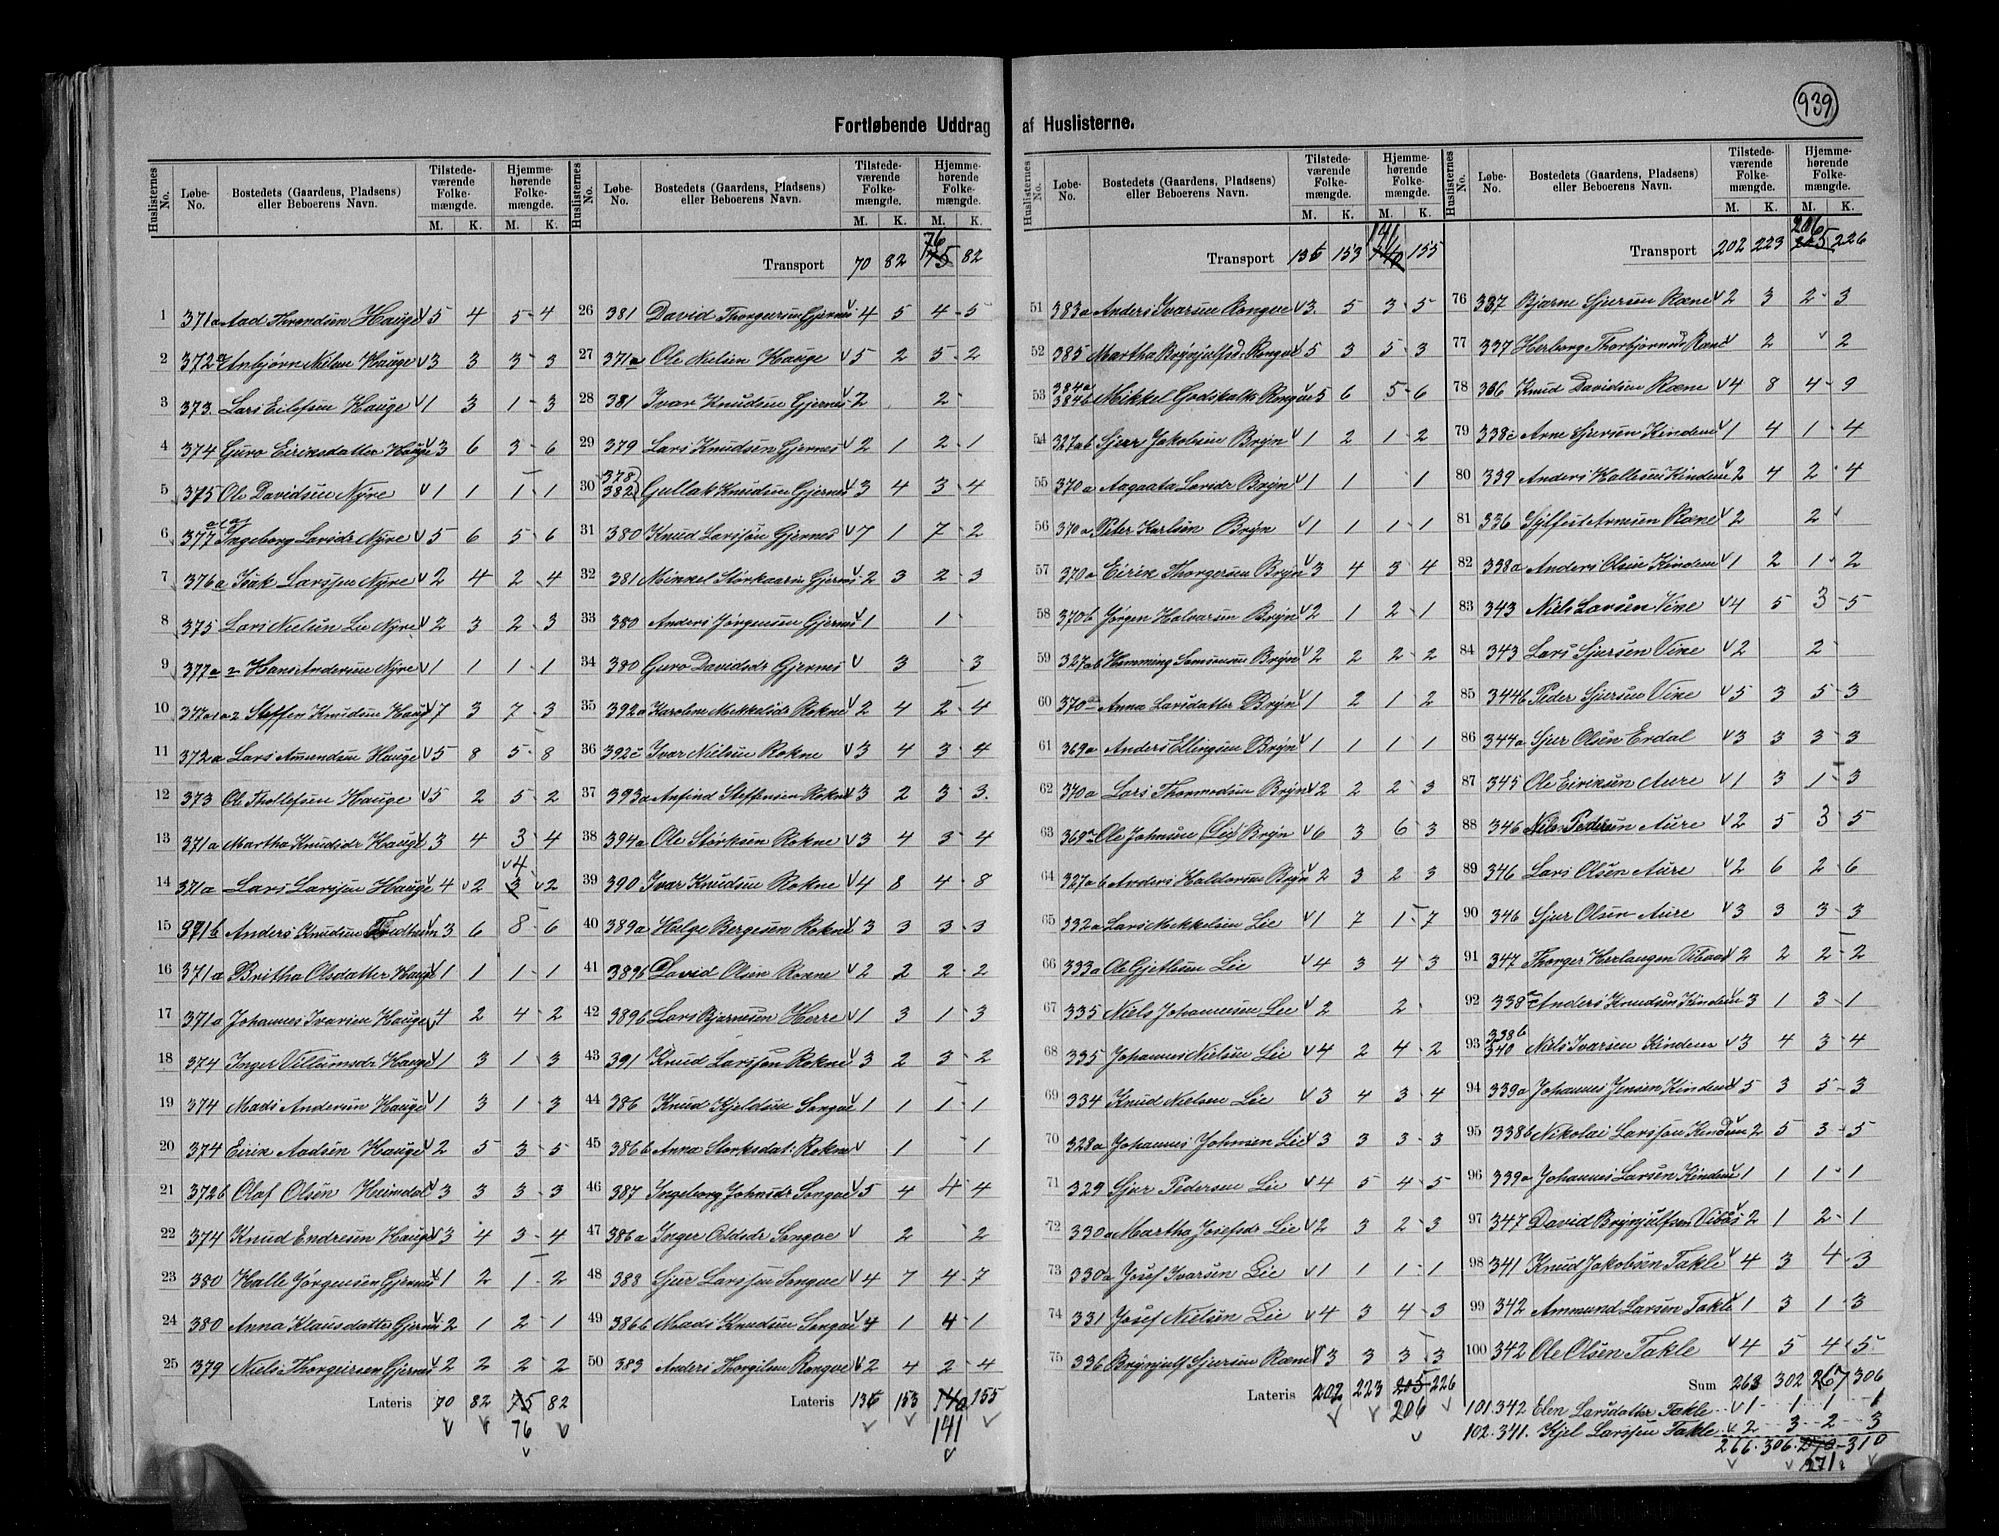 939
Fortløbende Uddrag af Huslisterne.
Huslisternes No. Løbe-No. Bostedets (Gaardens, Pladsens) eller Beboerens Navn. Tilstedeværende Folkemængde. M. K. Hjemmehørende Folkemængde. M. K.
1 371a Aad Throndsen Hauge v 5 4 5-4
2 372a Anbjørn Nilsen Hauge v 3 3 3-3
3 373. Lars Eilefsen Hauge v 1 3 1-3
4 374 Guro Eiriksdatter Hauge v 3 6 3-6
5 375 Ole Davidsen Nyre v 1 1 1-1
6 377 Ingeborg Larsdr Nyre v 5 6 5-6
7 376a Isak Larssen Nyre v 2 4 2-4
8 375 Lars Nielsen Lie Nyre v 2 3 2-3
9 377a2 Hans Andersen Nyre v 1 1 1-1
10 377a1a2 Steffen Knudsen Hauge v 7 3 7-3
11 372a Lars Amundsen Hauge v 5 8 5-8
12 373 Ole Thollefsen Hauge v 5 2 5-2
13 371a Martha Knudsdr Hauge v 3 4 3-4
14 371a Lars Larssen Hauge v 4 v 2 3 v4 v 2
15 371b Anders Knudsen v 3 6 8-6
16 371a Britha Olsdatter Hauge v 1 1 1-1
17 371a Johannes Ivarsen Hauge v 4 2 4-2
18 374 Inger Villumsdr Hauge v 1 3 1-3
19 374 Mads Andersen Hauge v 1 3 1-3
20 374 Eirik Aadsen Hauge v 2 5 3-5
21 372b Olaf Olsen Heimdal v 3 3 3-3
22 374 Knud Endresen Hauge v 3 4 3-4
23 380 Halle Jørgensen Gjernes v 1 2 1-2
24 380 Anna Klausdatter Gjernes v 2 1 2-1
25 379 Niels Thorgeirsen Gjernes v 2 2 2-2
Lateris 70 82 75 82
76
Huslisternes No. Løbe-No. Bostedets (Gaardens, Pladsens) eller Beboerens Navn. Tilstedeværende Folkemængde. M. K. Hjemmehørende Folkemængde. M. K.
76
Transport 70 82 75 82
26 381 David Thorgeirsen Gjernes v 4 5 4-5
27 371a Ole Nielsen Hauge v 5 2 5-2
28 381 Ivar Knudsen Gjernes v 2 2-
29 379 Lars Knudsen Gjernes v 2 1 2-1
30 378 382 Gullak Knudsen Gjernes v 3 4 3-4
31 380 Knud Larssen Gjernes v 7 1 7-2
32 381 Mikkel Gjernes 2 3 2-3
33 380 Anders Jørgensen Gjernes v 1 1-
34 380 Guro Davidsdr Gjernes v 3 -3
35 392a Karoline Mikkelsdr Rokne v 2 4 2-4
36 392c Ivar Nielsen Rokne v 3 4 3-4
37 393a Anfind Steffensen Rokne v 3 2 3-3.
38 394a Ole Størksen Rokne v 3 4 3-4
39 390 Ivar Knudsen Rokne v 4 8 4-8
40 389a Helge Bergesen Rokne v 3 3 3-3
41 389b David Olsen Rokne v 2 2 2-2
42 389b Lars Bjørnesen Herre v 1 3 1-3
43 391 Knud Larssen Rokne v 3 2 3-2
44 386 Knud Kjeldsen Songve v 1 1 1-1
45 386b Anna Størksdat. Rokne v 1 -1
46 387 Ingeborg Johnsdr Songve v 5 4 4-4
47 386a Inger Oddsdr Songve v 2 -2
48 388 Sjur Larssen Songve v 4 7 4-7
49 386b Mads Knudsen Songve v 4 1 4-1
50 383 Anders Thorgilsen Rongve v 2 4 2-4
Lateris 136 153 140 155
141
Huslisternes No. Løbe-No. Bostedets (Gaardens, Pladsens) eller Beboerens Navn. Tilstedeværende Folkemængde. M. K. Hjemmehørende Folkemængde. M. K.
141
Transport 136 153 140 155
51 383a Anders Ivarsen Rongve v 3. 5 3-5
52 385 Martha Brynjulfsd. Rongve v 5 3 5-3
53 384a 384b Mikkel Godskalks. Rongve v 5 6 5-6
54 327ab Sjur Jakobsen Bryn v 1 2 1-2
55 370a Aagaata Larsdr Bryn v 1 1 1
56 370a Peter Karlsen Bryn v 1 1 1-1
57 370a Eirik Thorgersen Bryn v 3 4 3-4
58 370b Jørgen Halvarsen Bryn v 2 1 2-1
59 327ab Hemming Samsonsen Bryn v 2 2 2-2
60 370a Anna Larsdatter Bryn v 1 2 1-2
61 369a Anders Ellingsen Bryn v 1 1 1-1
62 370a Lars Thormodsen Bryn v 2 2 2-3
63 369a Ole Johnsen (Lie) Bryn v 6 3 6-3
64 327ab Anders Haldorsen Bryn v 2 3 2-3
65 332a Lars Mikkelsen Lie v 1 7 1-7
66 333a Ole Gjetlsen Lie v 4 3 4-3
67 335 Niels Johannesen Lie v 2 2-
68 335 Johannes Nielsen Lie v 4 2 4-2
69 334 Knud Nielsen Lie v 3 4 3-4
70 328a Johannes Johnsen Lie v 3 3 3-3
71 329 Sjur Pedersen Lie v 4 5 4-5
72 330a Martha Josefsdr Lie v 2 3 2-3
73 330a Josef Ivarsen Lie v 1 1 1-1
74 331 Josef Nielsen Lie v 4 3 4-3
75 336 Brynjulf Sjursen Ræne v 3 3 3-3
Lateris 202 223 205 226
206
Huslisternes No. Løbe-No. Bostedets (Gaardens, Pladsens) eller Beboerens Navn. Tilstedeværende Folkemængde. M. K. Hjemmehørende Folkemængde. M. K.
206
Transport 202 223 205 226
76 337 Bjarne Sjursen Ræne v 2 3 2-3
77 337 Herborg Thorbjørnsd Ræne v 2 v 2
78 366 Knud Davidsen Ræne v 4 8 4-9
79 338c Arne Sjursen Kindem v 1 4 1-4
80 339 Anders Hallesen Kindem v 2 4 2-4
81 336 Sylfest Arnesen Ræne v 2 2 v
82 338a Anders Olsen Kindem v 1 2 1-2
83 343 Niels Larsen Vine v 4 5 3-5
84 343 Lars Sjursen Vine v 2 2-
85 344b Peder Sjursen Vine v 5 3 5-3
86 344a Sjur Olsen Erdal v 3 3 3-3
87 345 Ole Eiriksen Aure v 1 3 1-3
88 346 Nils Pedersen Aure v 2 5 3-5
89 346 Lars Olsen Aure v 2 6 2-6
90 346 Sjur Olsen Aure v 3 3 3-3
91 347 Thorger Herlaugen v 2 2 2-2
92 338c Anders Knudsen Kindem v 3 1 3-1
93 338b 340 Niels Ivarsen Kindem v 3 4 3-4
94 339a Johannes Jensen Kindem v 5 3 5-3
95 338b Nikolai Larsson Kindem v 2 5 3-5
96 339a Johannes Larsen Kindem v 1 1 1-1
97 347 David Brynjulfsen v 2 1 2-1
98 341 Knud Jakobsen Takle v 4 3 4-3
99 342 Ammund Larsen Takle v 1 3 1-3
100 342 Ole Olsen Takle v 4 5 4-5.
Sum 263 302 267 306
101. 342 Elen Larsdatter Takle v 1 1 1 1
102. 341. Kjel Larssen Takle v 2 3 2 3
266. 306. 270-310
271